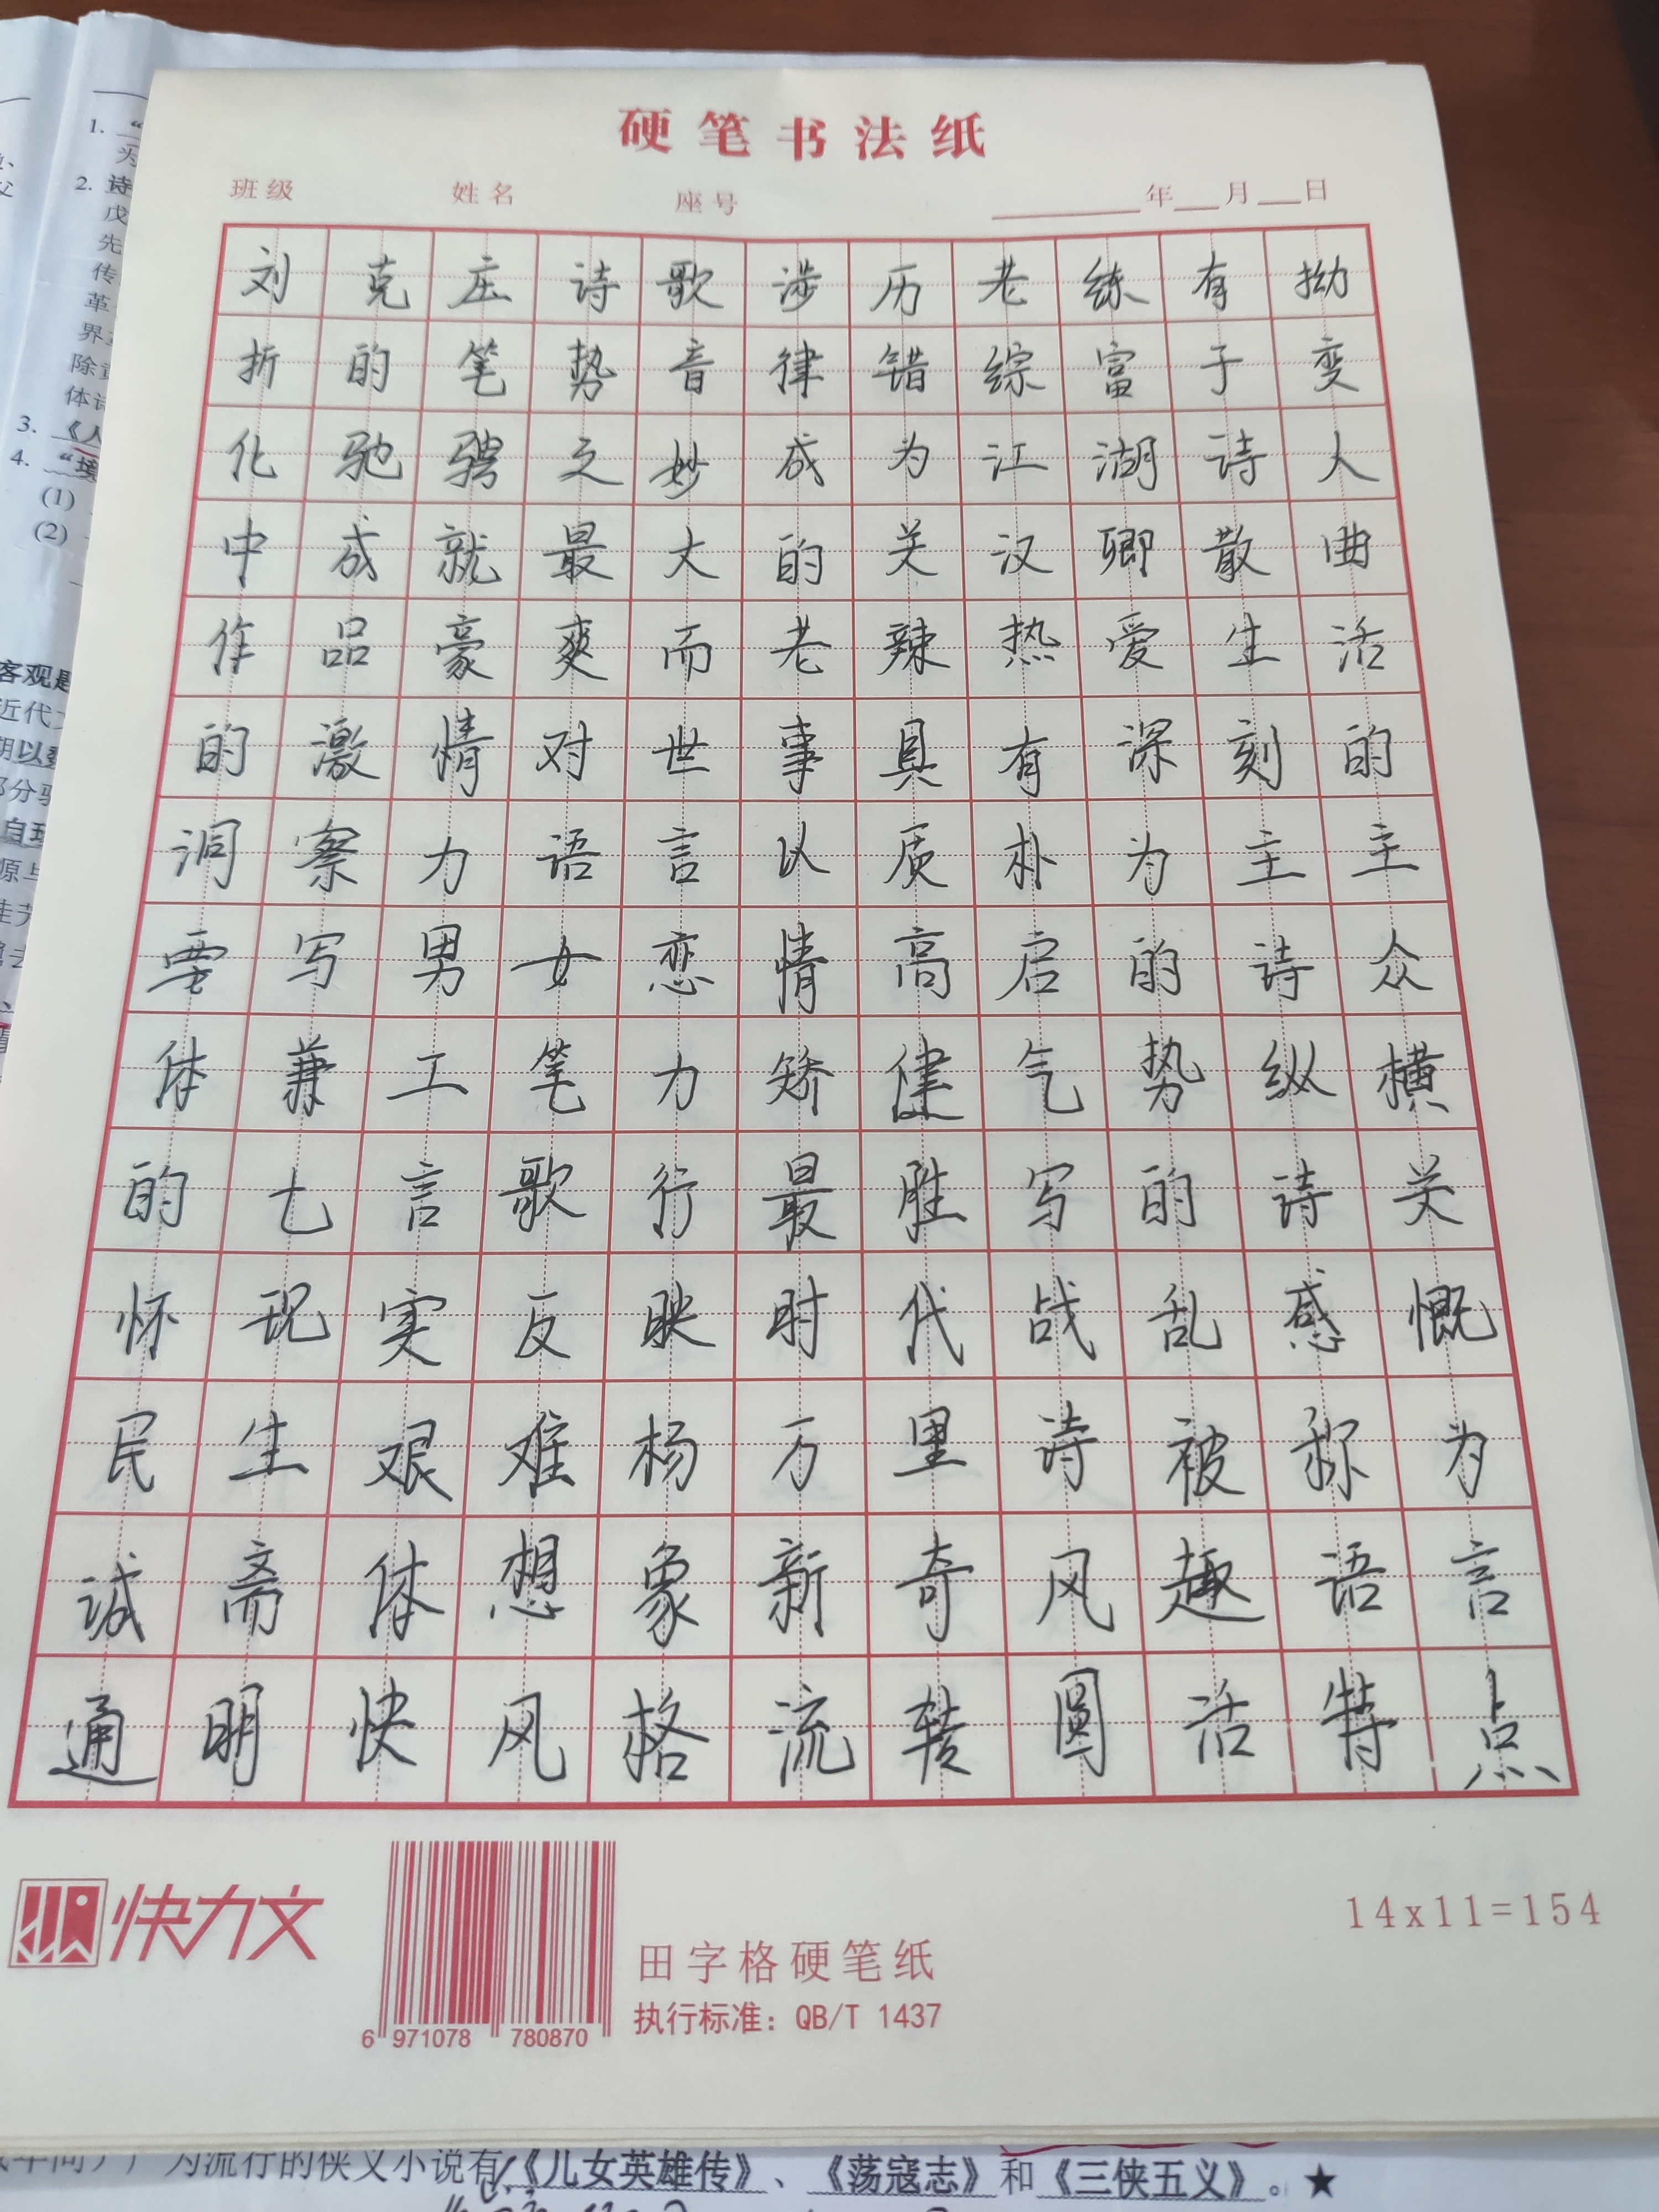 硬笔书法纸
班级 姓名 座号 年 月 日
刘克庄诗歌涉历老练有拗
折的笔势音律错综富于变
化驰骋之妙成为江湖诗人
中成就最大的关汉卿散曲
作品豪爽而老辣热爱生活
的激情对世事具有深刻的
洞察力语言以质朴为主主
要写男女恋情高启的诗众
体兼工笔力矫健气势纵横
的七言歌行最胜写的诗关
怀现实反映时代战乱感慨
民生艰难杨万里诗被称为
诚斋体想象新奇风趣语言
通明快风格流转圆活特点
快力文
6 971078 780870
田字格硬笔纸
执行标准：QB/T 1437
14x11=154
1.
为
2. 诗
戊
先
传
革
界
除
体
3. 《人
4.
(1)
(2)
客观是
近代
期以
部分
自
源与
为流行的侠义小说有《儿女英雄传》、《荡寇志》和《三侠五义》。★